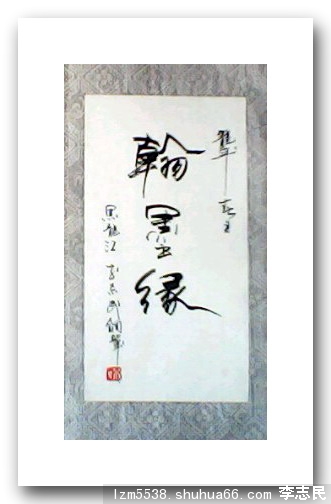 翰墨缘
黑龍江 李志民鋼筆
lzm5538.shuhua66.com 李志民